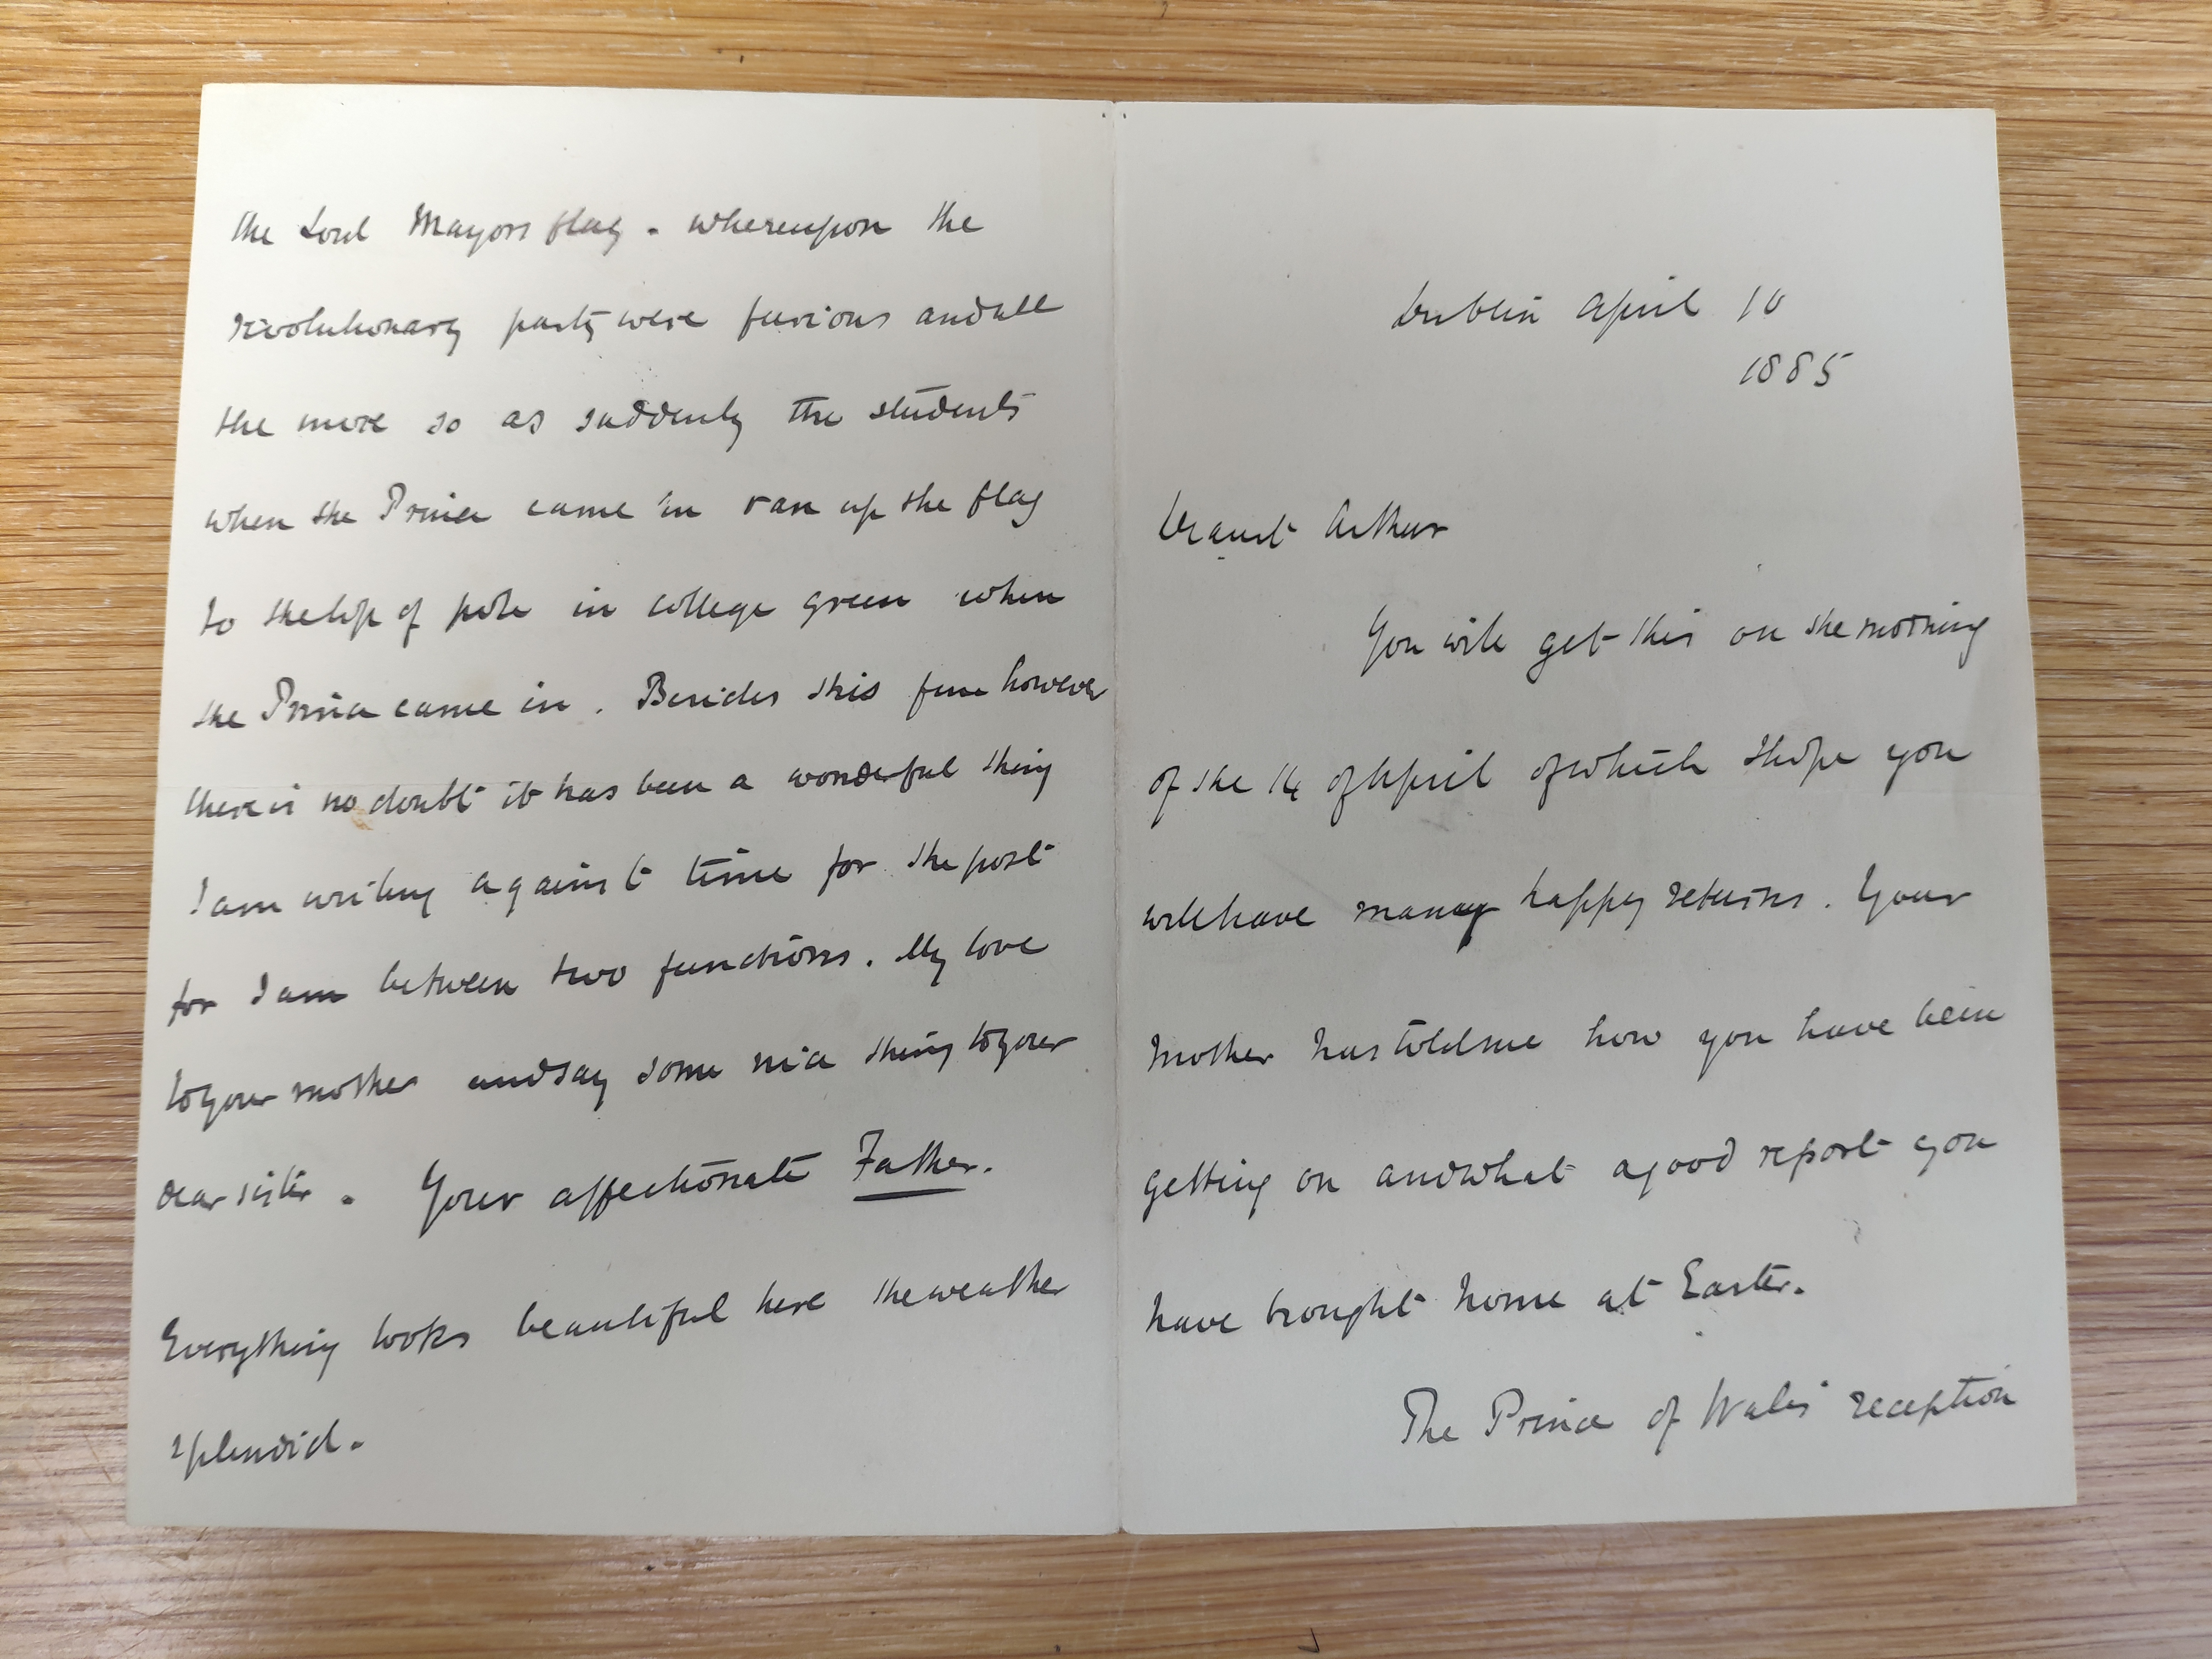 Dublin April 10
1885
Dearest Arthur
You will get this on the morning
of the 14 of April of which I hope you
will have many happy returns. Your
Mother has told me how you have been
getting on and what a good report you
have brought home at Easter.
The Prince of Wales reception
the Lord Mayors flag - whereupon the
revolutionary party were furious and all
the more so as suddenly the students
when the Prince came in ran up the flag
to the top of pole in college green when
the Prince came in. Besides this fun however
there is no doubt it has been a wonderful thing
I am writing against time for the post
for I am between two functions. My love
to your mother and say some nice thing to your
dear sister - Your affectionate Father.
Everything looks beautiful here the weather
splendid.